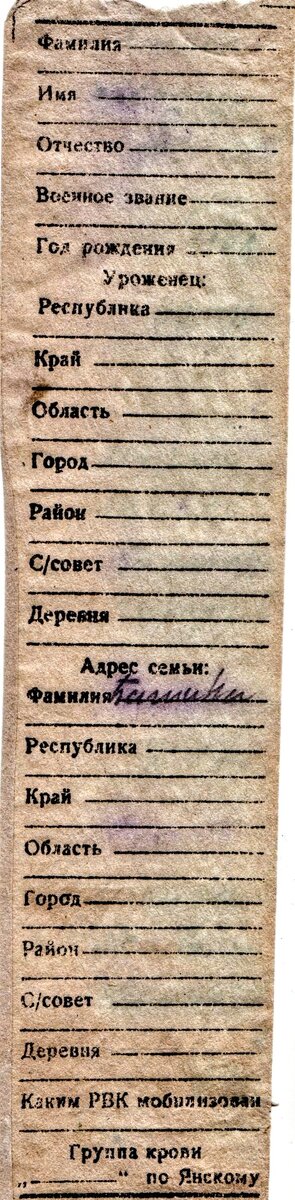 Фамилия
Имя
Отчество
Военное звание
Год рождения
Уроженец:
Республика
Край
Область
Город
Район
С/совет
Деревня
Адрес семьи:
Фамилия
Республика
Край
Область
Город
Район
С/совет
Деревня
Каким РВК мобилизован
Группа крови
„ “ по Янскому